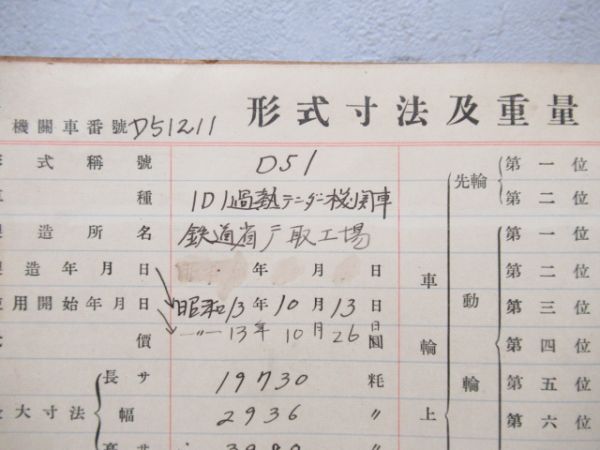 形式寸法及重量
機關車番號 D51211
式稱號 D51
種 1D1過熱テンダー機関車
造所名 鉄道省戸取工場
造年月日 年 月 日
用開始年月日 昭和13年10月13日
價 〃 13年10月26日 圓
大寸法
長サ 19730 粍
幅 2936 〃
高サ 3980 〃
車輪上
先輪
第一位
第二位
動輪
第一位
第二位
第三位
第四位
第五位
第六位